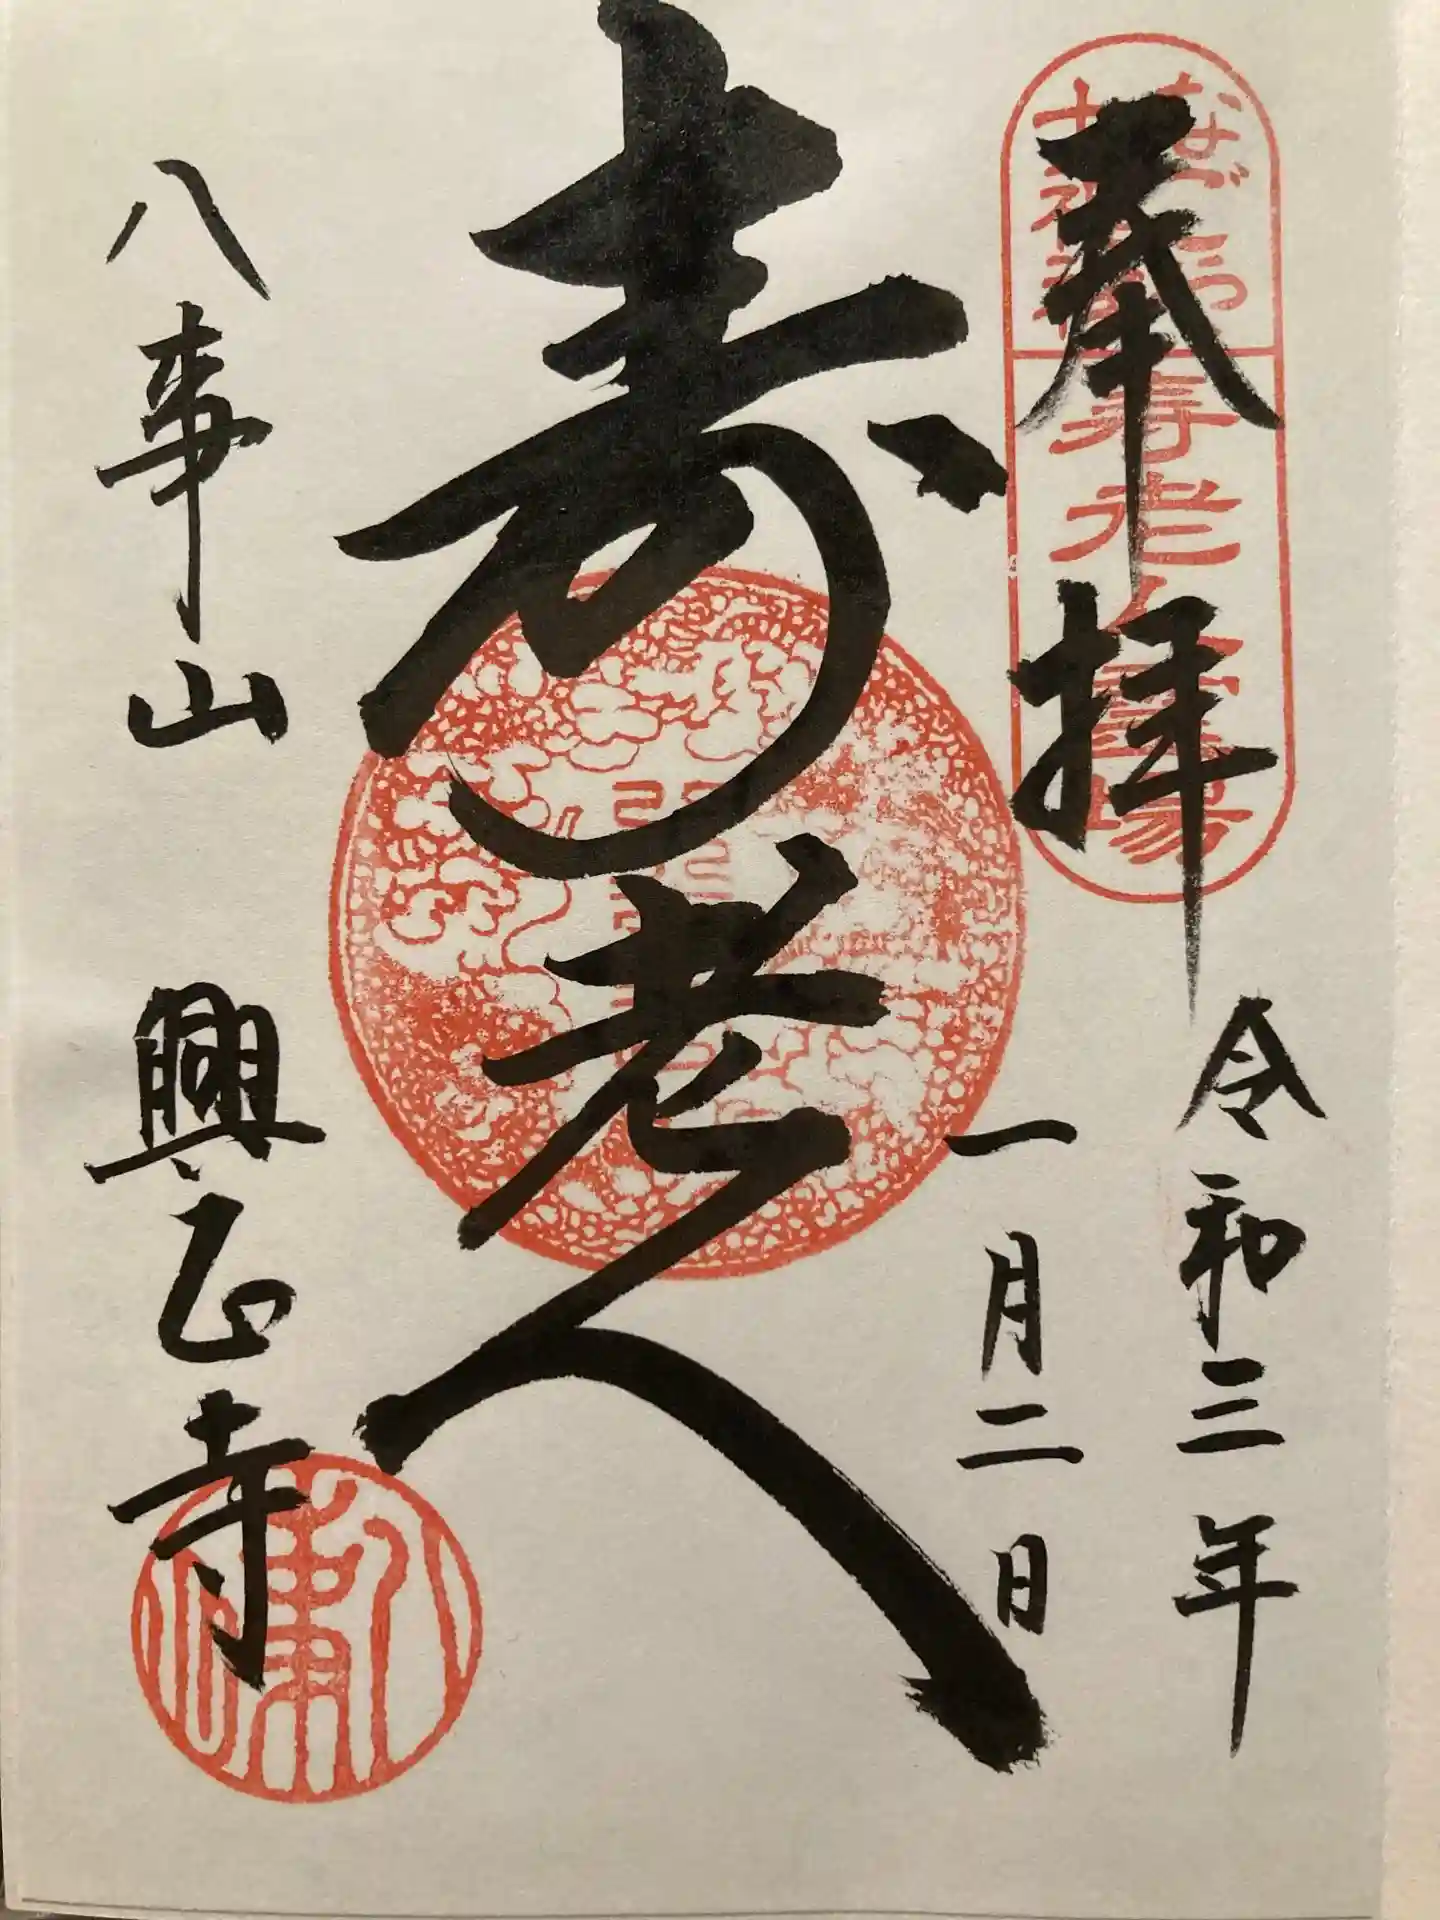 奉拝
令和三年
一月二日
なごや
七福神
寿老人霊場
寿老人
八事山 興正寺
八事山